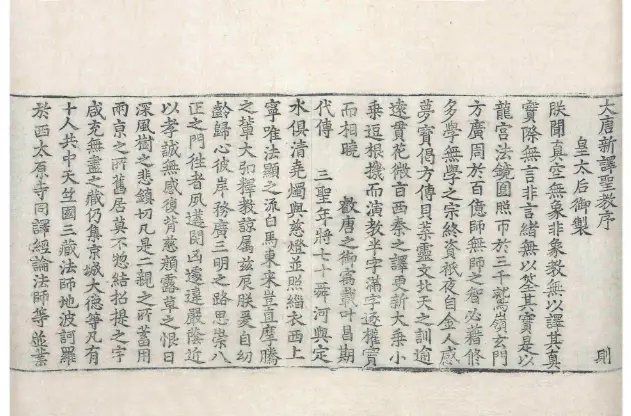 大唐新譯聖教序
皇太后御製 則
朕聞真空無象非象教無以譯其真
實際無言非言緒無以筌其實是以
龍宮法鏡圓照帀於三千鷲嶺玄門
方廣周於百億師無師之智必藉修
多學無學之宗終資祇夜自金人感
夢寶偈方傳貝葉靈文北天之訓逾
遠貫花微言西秦之譯更新大乘小
乘逗根機而演教半字滿字逐權實
而相曉 粵唐之御寓載叶昌期
代傳 三聖年將七十舜河與定
水俱清堯燭與慈燈並照緇衣西上
寧唯法顯之流白馬東來豈直摩騰
之輩大弘釋教諒屬茲辰朕爰自幼
齡歸心彼岸務廣三明之路思崇八
正之門徃者夙遘閔凶遽違嚴蔭近
以孝誠無感復背慈顏露草之恨日
深風樹之悲鎮切凡是二親之所蓄用
兩京之所舊居莫不惣結招提之宇
咸充無盡之藏仍集京城大德等凡有
十人共中天竺國三藏法師地波訶羅
於西太原寺同譯經論法師等並業